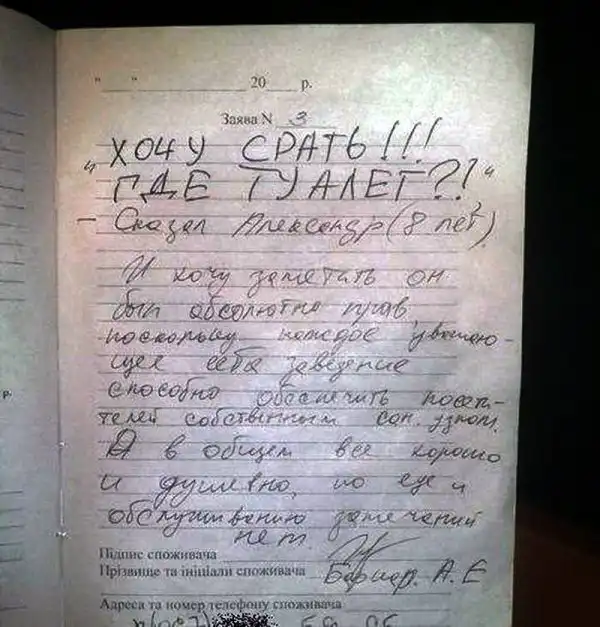 "____" ____________ 20 ___ р.
Заява N 3
"ХОЧУ СРАТЬ!!!
ГДЕ ТУАЛЕТ?!"
- Сказал Александр (8 лет).
И хочу заметить он
был абсолютно прав
поскольку каждое уважаю-
щее себя заведение
способно обеспечить посети-
телей собственным сан. узлом.
А в общем все хорошо
и душевно, по еде и
обслуживанию замечаний
нет.
Підпис споживача
Прізвище та ініціали споживача А. Е
Адреса та номер телефону споживача
р.